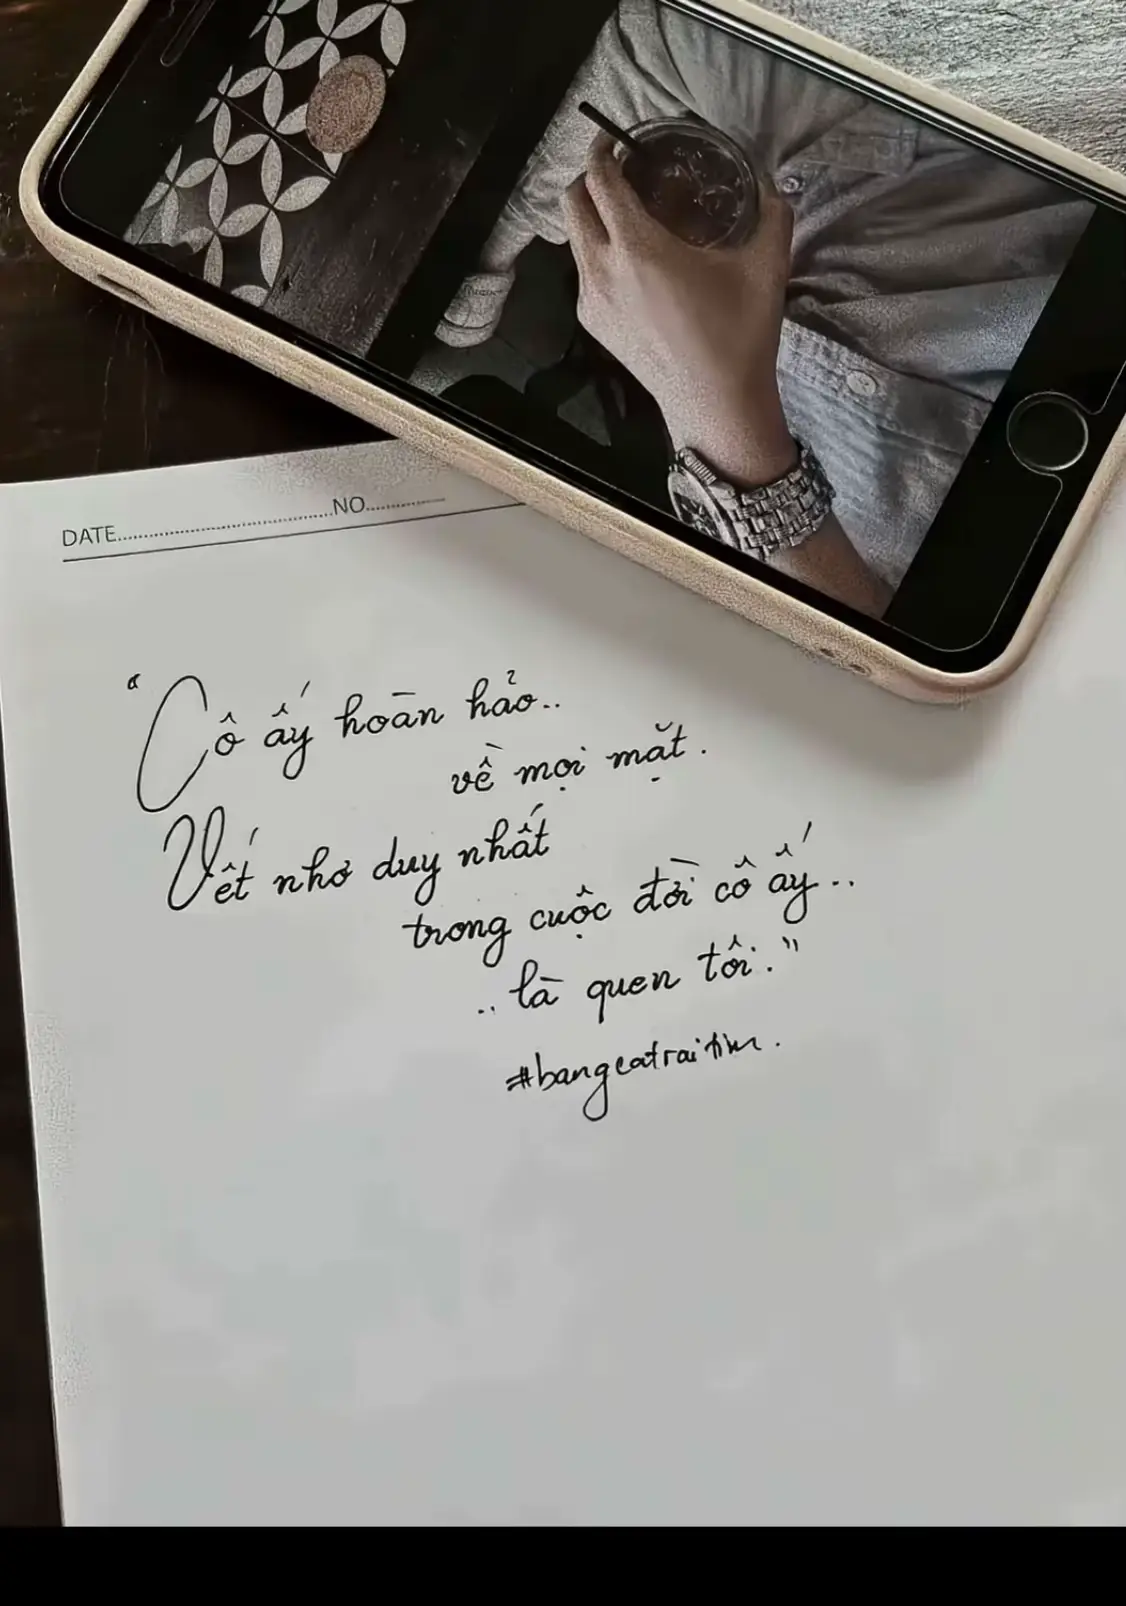 DATE..............................NO..............
"Cô ấy hoàn hảo..
về mọi mặt.
Vết nhơ duy nhất
trong cuộc đời cô ấy..
..là quen tôi."
#bangcatraitim.